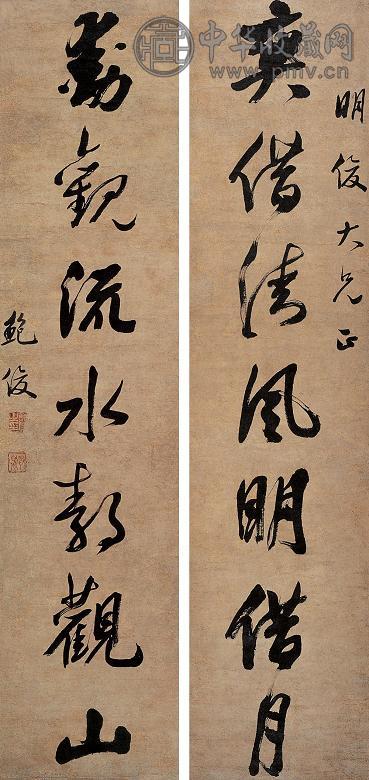 中华收藏网
www.pmv.cn
明俊大兄正
爽借清風明借月
動觀流水靜觀山
鮑俊